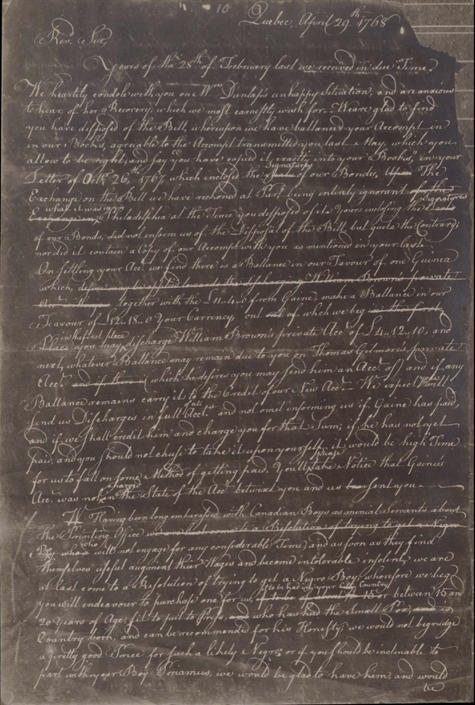 10
Quebec, April 29th 1768
Revd. Sir,
Yours of the 28th of Frebruary last we received in due Time.
We heartily condole with you on Mrs Dunlaps unhappy Situation, and are anxious
to hear of her Recovery, which we most earnestly wish for. We are glad to find
you have disposed of the Bill, whereupon we have ballanced your Accompt in
in our Books, agreable to the Accompt transmitted you last May, which you
allow to be right, and say you have copied it exactly into your Books, in your
Signatures
Letter of Octr. 26th 1767 which enclosed the of our Bonds, The
Exchange on the Bill we have reckoned at Par, being entirely ignorant of the
what it was at Signatures
Exchange Philadelphia at the Time you disposed of it. Yours enclosing the
of our Bonds, did not inform us of the Disposal of the Bill but quite the Contrary,
nor did it contain a Copy of our Accompt with you as mentioned in your last.
On settling your Acct. we find there is a Ballance in our Favour of one Guinea
which William Brown's private
Acct. together with the £11.4.0 from Gaine, makes a Ballance in our
Favour of £12.18.0 Your Currency, out of which we beg
in the first place
you may discharge William Brown's private Acct. of £4.12.10, and
next, whatever Ballance may remain due to you on Thomas Gilmore's private
Acct. (which he desires you may send him an Acct. of) and if any
Ballance remains carry it to the Credit of our New Acct. We expect you'll
send us Discharges in full and not omit informing us if Gaine has paid,
and if we shall credit him and charge you for that Sum; if he has not yet
paid, and you should not chuse to take it upon yourself, it would be high Time
please
for us to fall on some Method of getting paid. You take Notice that Gaines
Acc. was not the State of the Acct. betwixt you and us sent you.
Having been long embarassed with Canadian Boys as menial Servants about
the Printing Office
who will not engage for any considerable Time, and as soon as they find
themselves useful augment their Wages and become intolerably insolent, we are
at last come to a Resolution of trying to get a Negro Boy, wherefore we beg
you will endeavour to purchase one for us, between 15 and
20 Years of Age, fit to put to Press, who has had the Small Pox, is
Country born, and can be recommended for his Honesty; we would not begridge
a pretty good Price for such a likely Negro, or if you should be inclinable to
part with your Boy Priamus, we would be glad to have him, and would
be